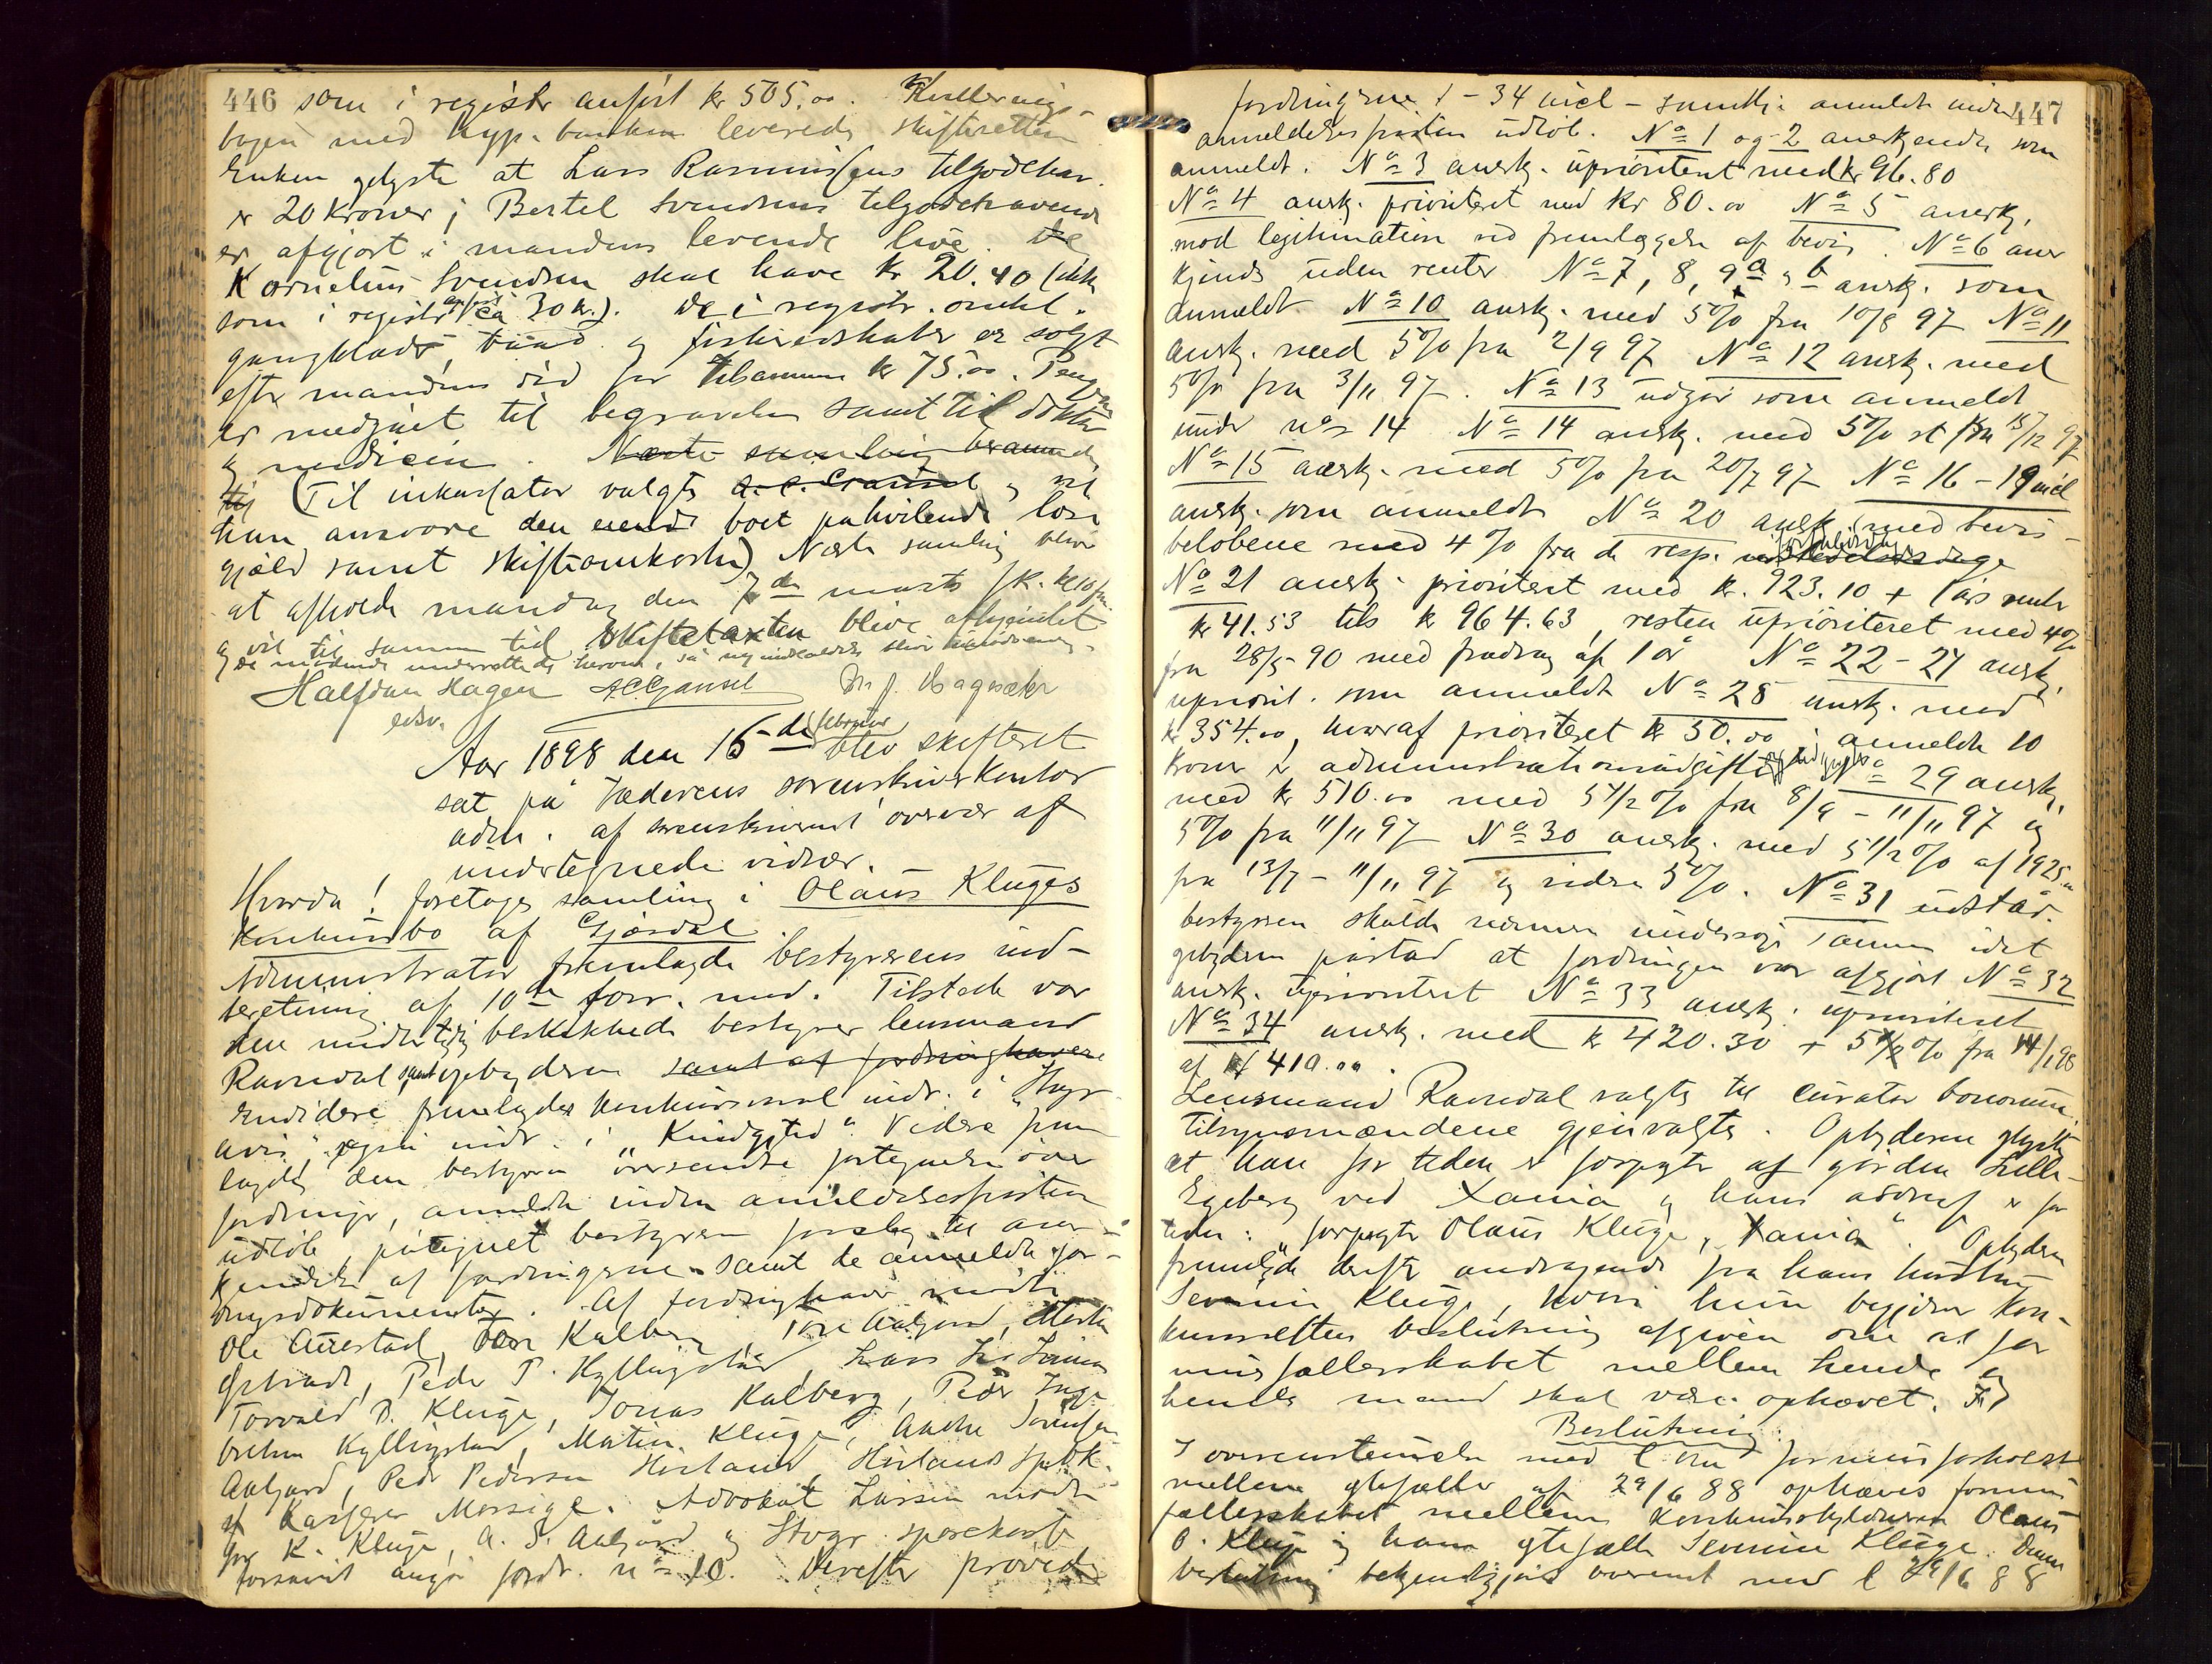 446 som i registr anført kr 505.00. Kvitterings-
bogen med hyp. banken leveredes skifteretten
Enken oplyste at Lars Rasmussens tilgodehav.
er 20 kroner; Bertel Svendsens tilgodehavende
er afgjort i mandens levende live. De
Kornelius Svendsen skal have kr 20.40 (ikke
som i registr anført ca 30 kr.). De i registr. omhl.
gangklæder, baad og fiskeredskaber er solgt
efter mandens død for tilsammen kr 75.00. Pengene
er medgaaet til begravelse samt til doktor
og medicin. Næste samling berammedes
til (Til inkassator valgtes A. C. Gramsel og vil
han ansvare den boet påhvilende løse
gjæld samt skifteomkostn.) Næste samling blev
at afholde mandag den 7de marts fk. kl 10 fm.
og vil til samme tid skiftetaxten blive afhjemlet
og de mødende underrettedes herom, så ny indkaldelse blir unødvendig.
Halfdan Hagen A C Gjamsel M. J. Hagesæter
edsv.
Aar 1898 den 15de februar blev skifteret
sat på Jæderens sorenskriverkontor
adm. af sorenskriveren i overvær af
undertegnede vidner.
Hvorda! foretoges samling i Olaus Kluges
konkursbo af Gjæsdal
Administrator fremlagde bestyrerens ind-
beretning af 10de forr. med. Tilstede var
den midlertidig beskikkede bestyrer lensmand
Ravndal samt opbyderen samt af fordringshavere
Endvidere fremlagdes konkursinnk indr. i "Stvgr
avis", også indr. i "Kundgjtid". Videre frem
lagdes den bestyreren oversendte fortegnelse over
fordringer, anmeldte inden anmeldelsesfristens
udløb, påtegnet bestyreren forslag til aner-
kjendelse af fordringerne samt de anmeldte for-
dringsdokumenter. Af fordringshavere mødte
Ole Auestad, Tore Kalberg, Tore Aalgaard, Martin
Østraadt, Peder P. Kyllingstad, Lars
Torvald B. Kluge, Jonas Kalberg, Peder Inge
bretsen Kyllingstad, Martin Kluge, Andre Svendsen
Aalgaard, Peder Pedersen Hørland, Hørlands spbk.
v/ kasserer Mossige. Advokat Larsen mødte
for K. Kluge, A. S. Aalgård og Stvgr. sparekasse
forsåvidt angår fordr. no 10. Derefter prøvedes
447
fordringerne 1 - 34 incl - samtlige anmeldt inden
anmeldelsesfristen udløb. No 1 og 2 anerkjendes som
anmeldt. No 3 anerkj. uprioritert med kr 96.80
No 4 anerkj. prioriteret med kr 80.00 No 5 anerkj.
mod legitimation ved fremlæggelse af bevis. No 6 aner
kjendes uden renter No 7, 8, 9 a og b anerkj. som
anmeldt No 10 anerkj. med 5% fra 10/8 97 No 11
anerkj. med 5% fra 2/9 97 No 12 anerkj. med
5% fra 3/11 97. No 13 udgår som anmeldt
under no 14 No 14 anerkj. med 5% st fra 15/12 97
No 15 anerkj. med 5% fra 20/7 97 No 16 - 19 incl
anerkj. som anmeldt No 20 anerkj. med bevis-
beløbene med 4% fra de resp. forfaldsdage
No 21 anerkj. prioriteret med kr. 923.10 + 1 års rente
kr 41.53 tils kr 964.63, resten uprioriteret med 4%
fra 28/5 90 med fradrag af 1 år No 22 - 27 anerkj.
upriorit. som anmeldt No 28 anerkj. med
kr 354.00, hvoraf prioriteret kr 50.00; anmeldte 10
kroner i administrationsudgifter No 29 anerkj.
med kr 510.00 med 5 1/2 % fra 8/9 - 11/11 97 og
5% fra 11/11 97 No 30 anerkj. med 5 1/2 % af 1925.00
fra 13/7 - 11/11 97 og videre 5%. No 31 udstår.
bestyreren skulde nærmere undersøge samme idet
opbyderen påstod at fordringen var afgjort No 32
anerkj. uprioriteret No 33 anerkj. uprioriteret
No 34 anerkj. med kr 420.30 + 5 % fra 14/1 98
af kr 410.00.
Lensmand Ravndal valgtes til curator bonorum.
Tilsynsmændene gjenvalgtes. Opbyderen oplyste
at han for tiden er forpagter af gården Lille-
Egeberg ved Xania og hans adresse er for
tiden: "forpagter Olaus Kluge, Xania". Opbyderen
fremlagde derefter andragende fra hans hustru
Severine Kluge, hvori hun begjærer kon-
kursrettens beslutning afgiven om at for
muesfællesskabet mellem hende og
hendes mand skal være ophævet.
Beslutning:
I overensstemmelse med l. om formuesforholdet
mellem ægtefæller af 29/6 88 ophæves formues
fællesskabet mellem konkursskyldneren Olaus
O. Kluge og hans ægtefælle Severine Kluge. Denne
beslutning bekjendtgjøres overensst med l 29/6 88